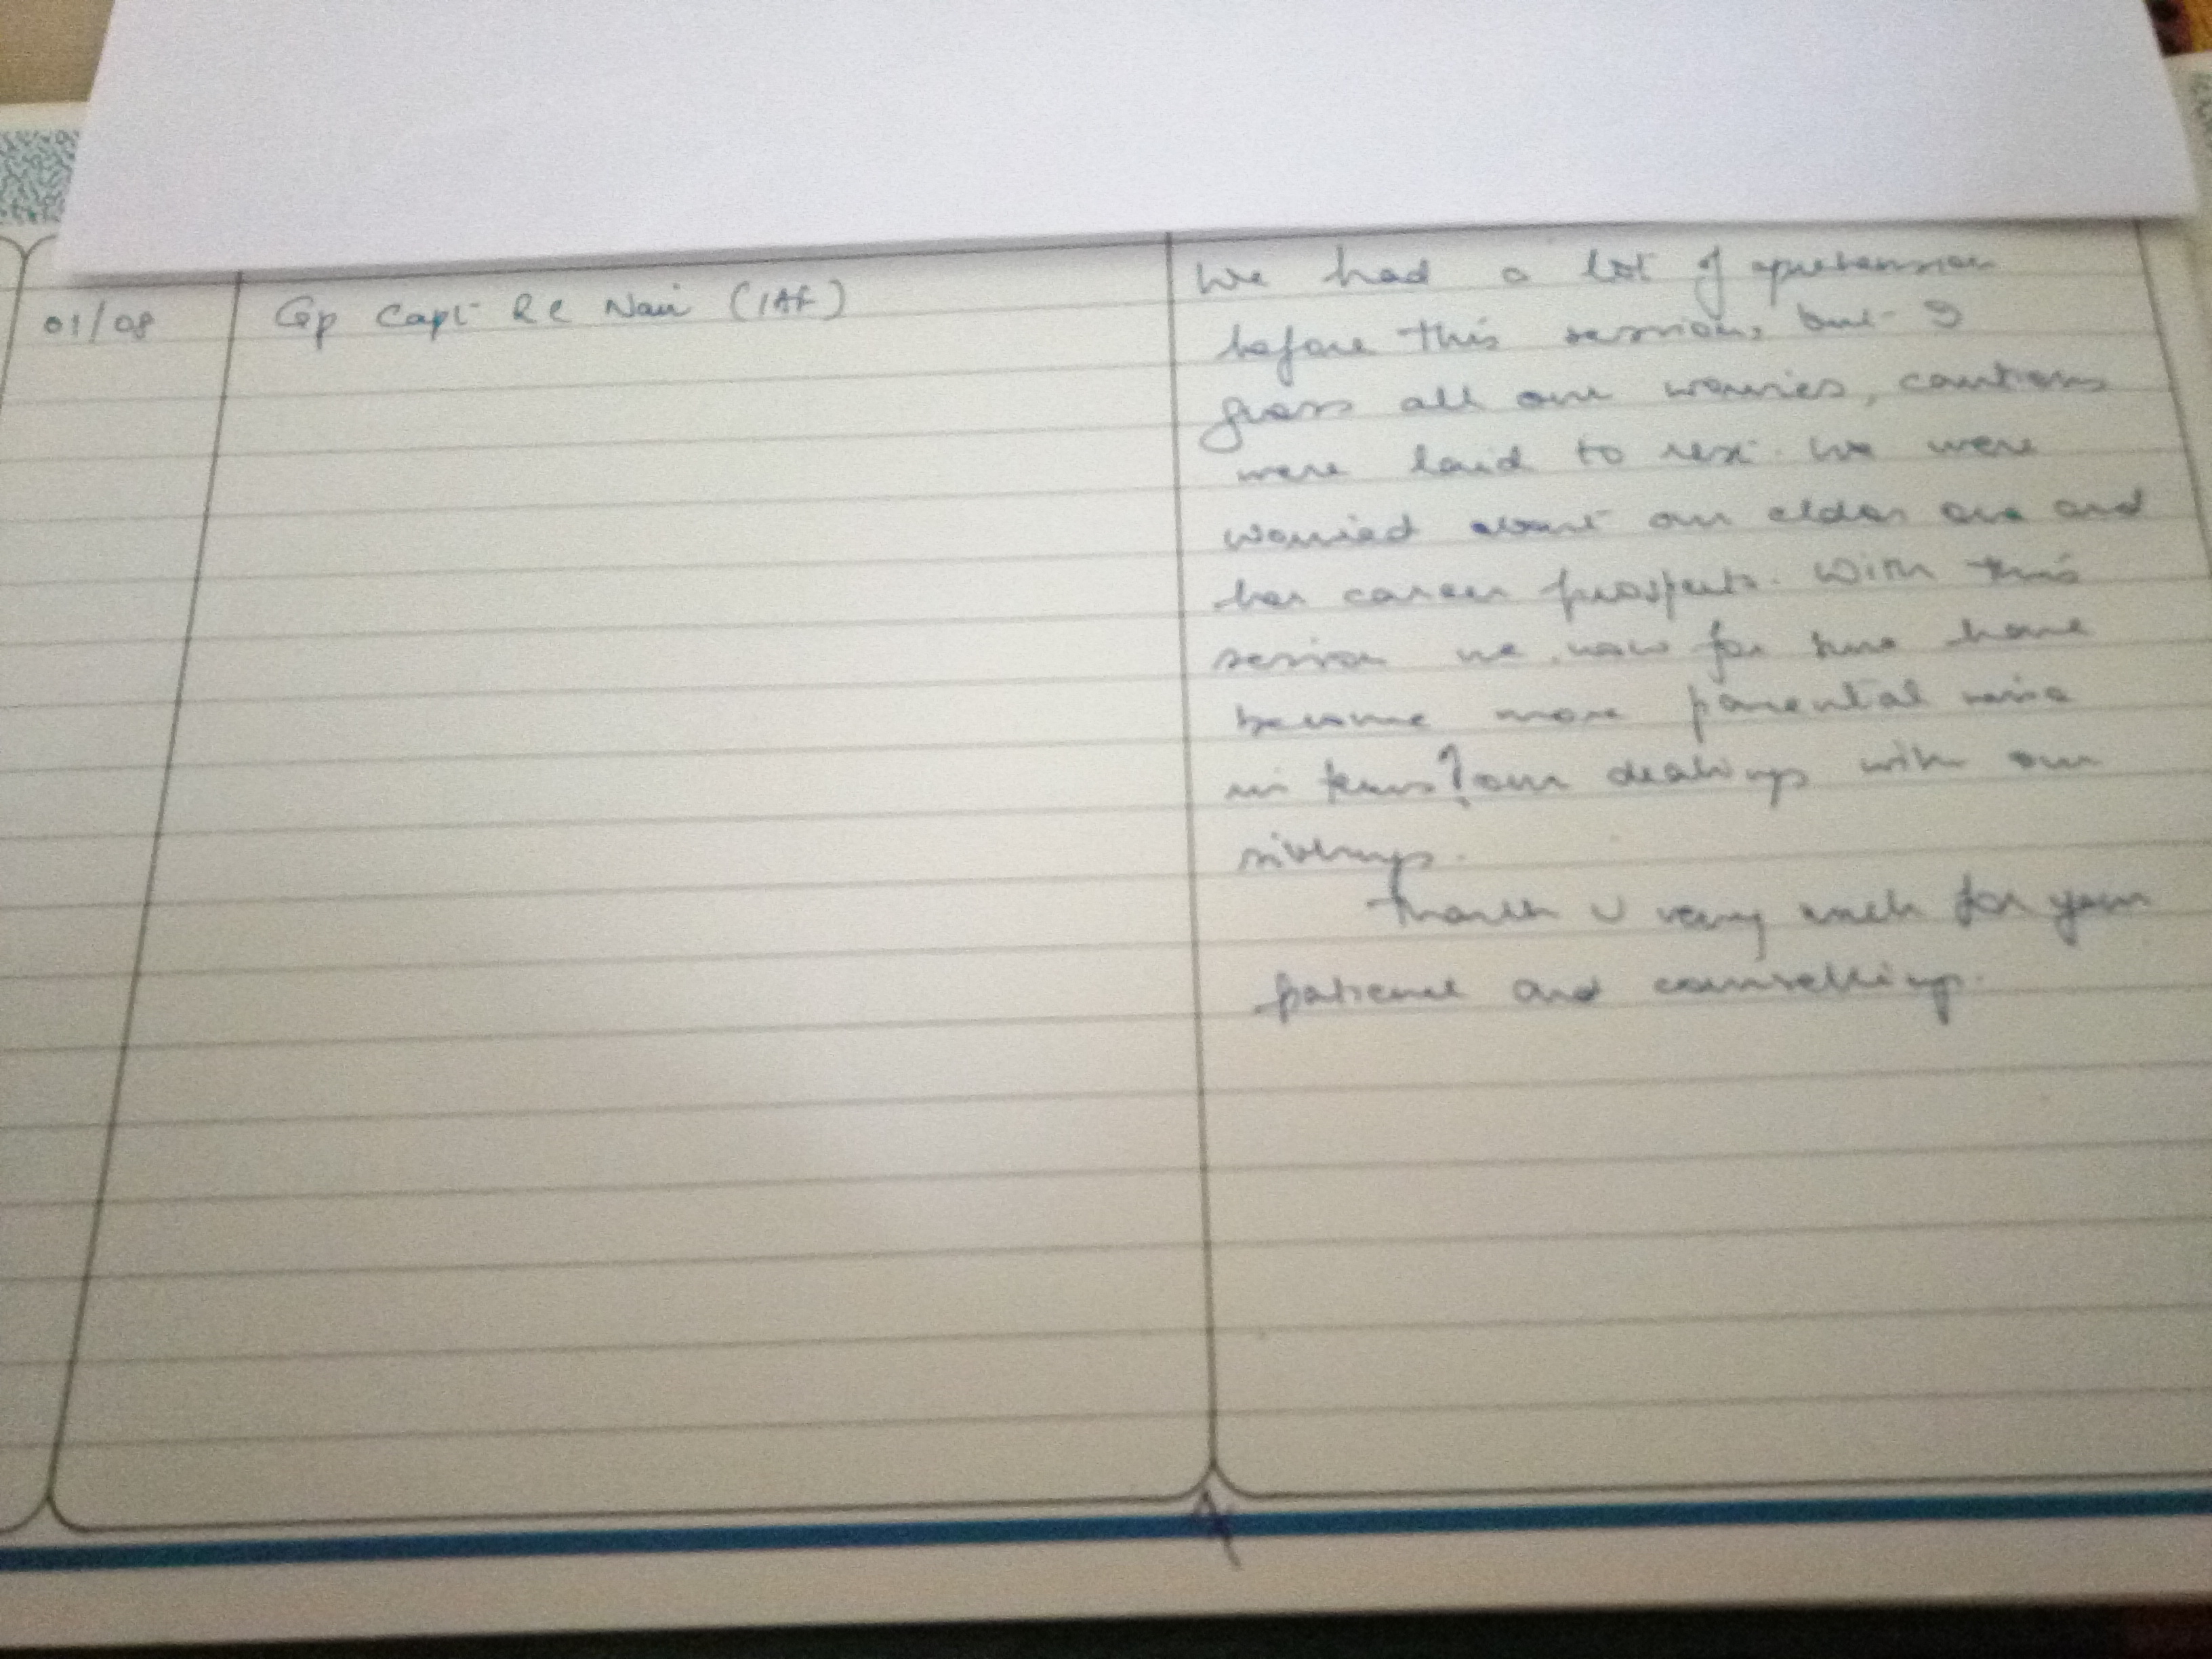 01/08 Gp Capt R C Nair (IAF)
We had a lot of aprehension
before this session, but I
guess all our worries, cautions
were laid to rest. We were
worried about our elder one and
her career prospects. With this
session we now for sure have
become more parental wise
in terms of our dealings with our
siblings.
Thank U very much for your
patience and counselling.